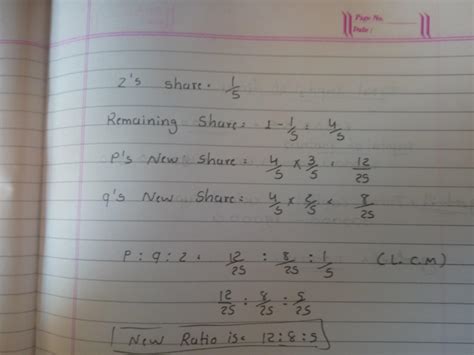 Page No.
Date :
Z's share = 1/5
Remaining Share = 1 - 1/5 = 4/5
P's New Share = 4/5 x 3/5 = 12/25
q's New Share = 4/5 x 2/5 = 8/25
P : q : Z = 12/25 : 8/25 : 1/5 (L.C.M)
12/25 : 8/25 : 5/25
New Ratio is = 12:8:5